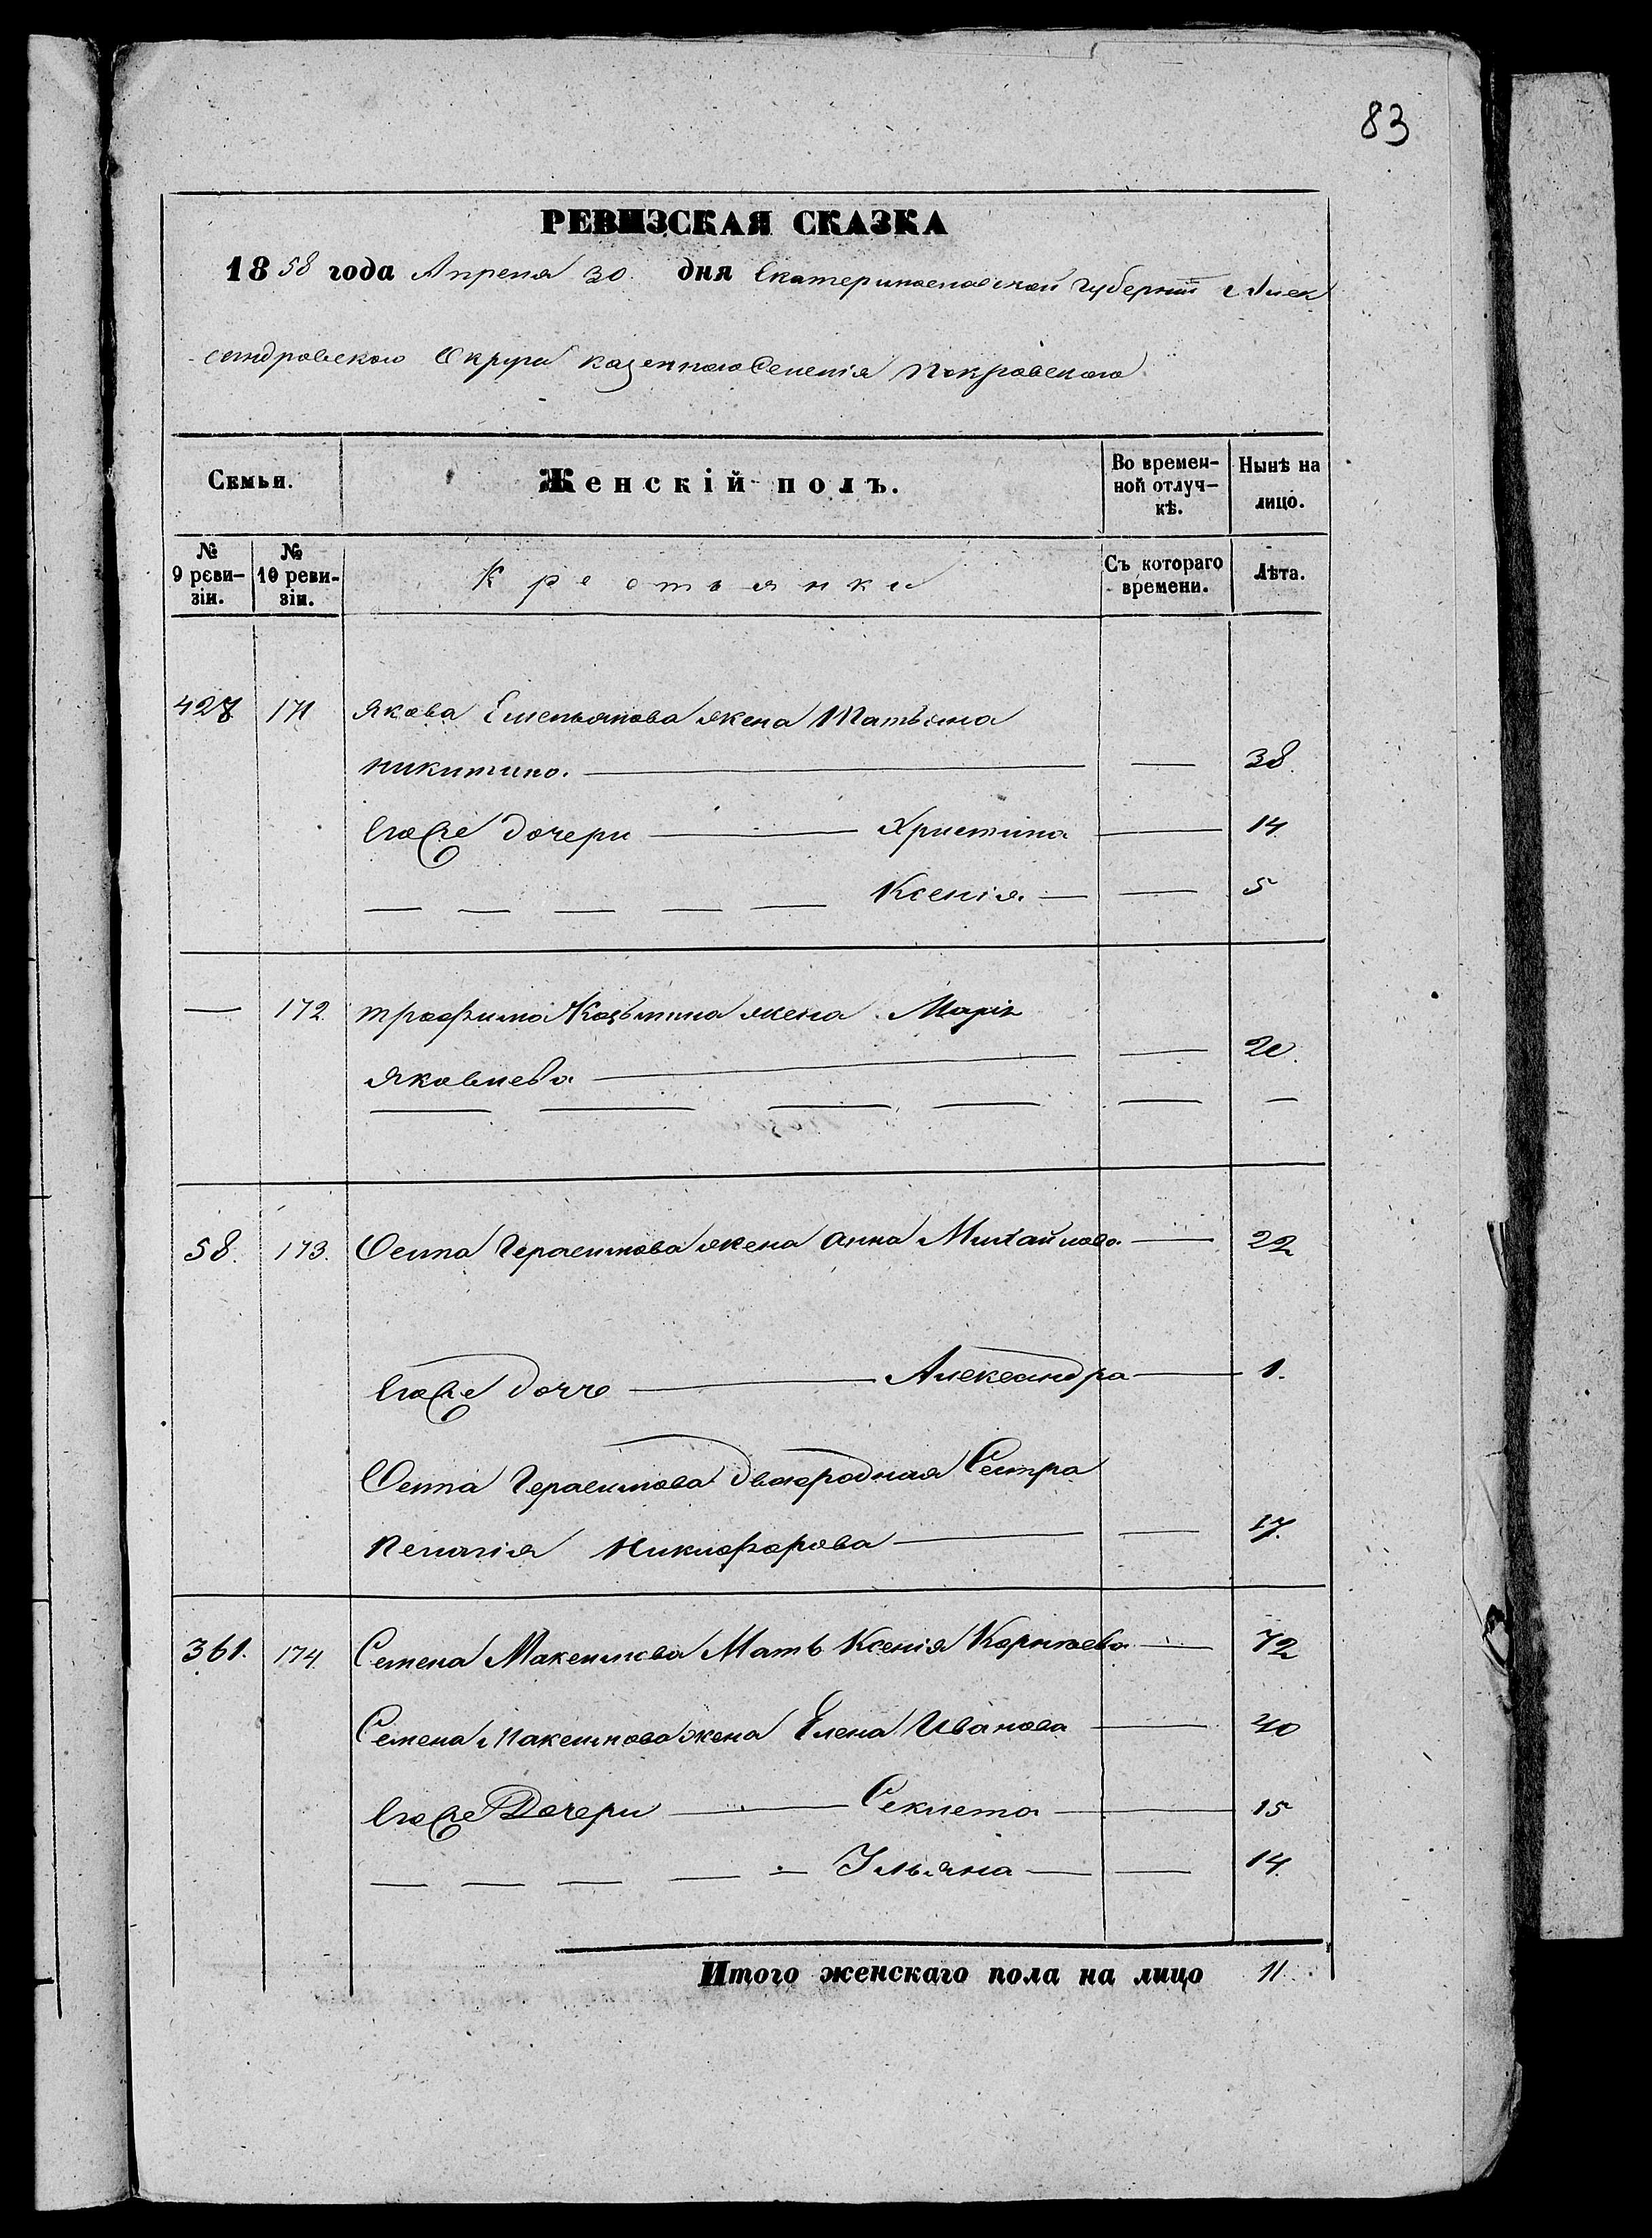 83
РЕВИЗСКАЯ СКАЗКА
1858 года Апреля 30. дня Екатеринославской губерніи Алек
сандровского Округа казенного Селенія Покровского
Семьи. Женскій полъ. Во времен-ной отлуч-кѣ. Нынѣ на лицо.
№ 9 реви-зіи. № 10 реви-зіи. Крестьянки Съ котораго времени. Лѣта.
427 171 Якова Емельянова жена Татьяна
Никитина. — — 38.
Его же дочери — Христина — 14
— — — — — Ксенія — — 5
— 172. Трофима Козьмина жена Марія
Яковлева — — 20.
— — — — — —
58. 173. Осипа Герасимова жена Анна Михайлова — 22
Его же дочь — Александра — 1.
Осипа Герасимова двоюродная Сестра
Пелагія Никифорова — — 17.
361. 174. Семена Максимова Мать Ксенія Корнѣева — 72
Семена Максимова жена Елена Иванова — 40
Его же Дочери — Секлета — 15
— — — — — Ульяна — — 14.
Итого женскаго пола на лицо 11.